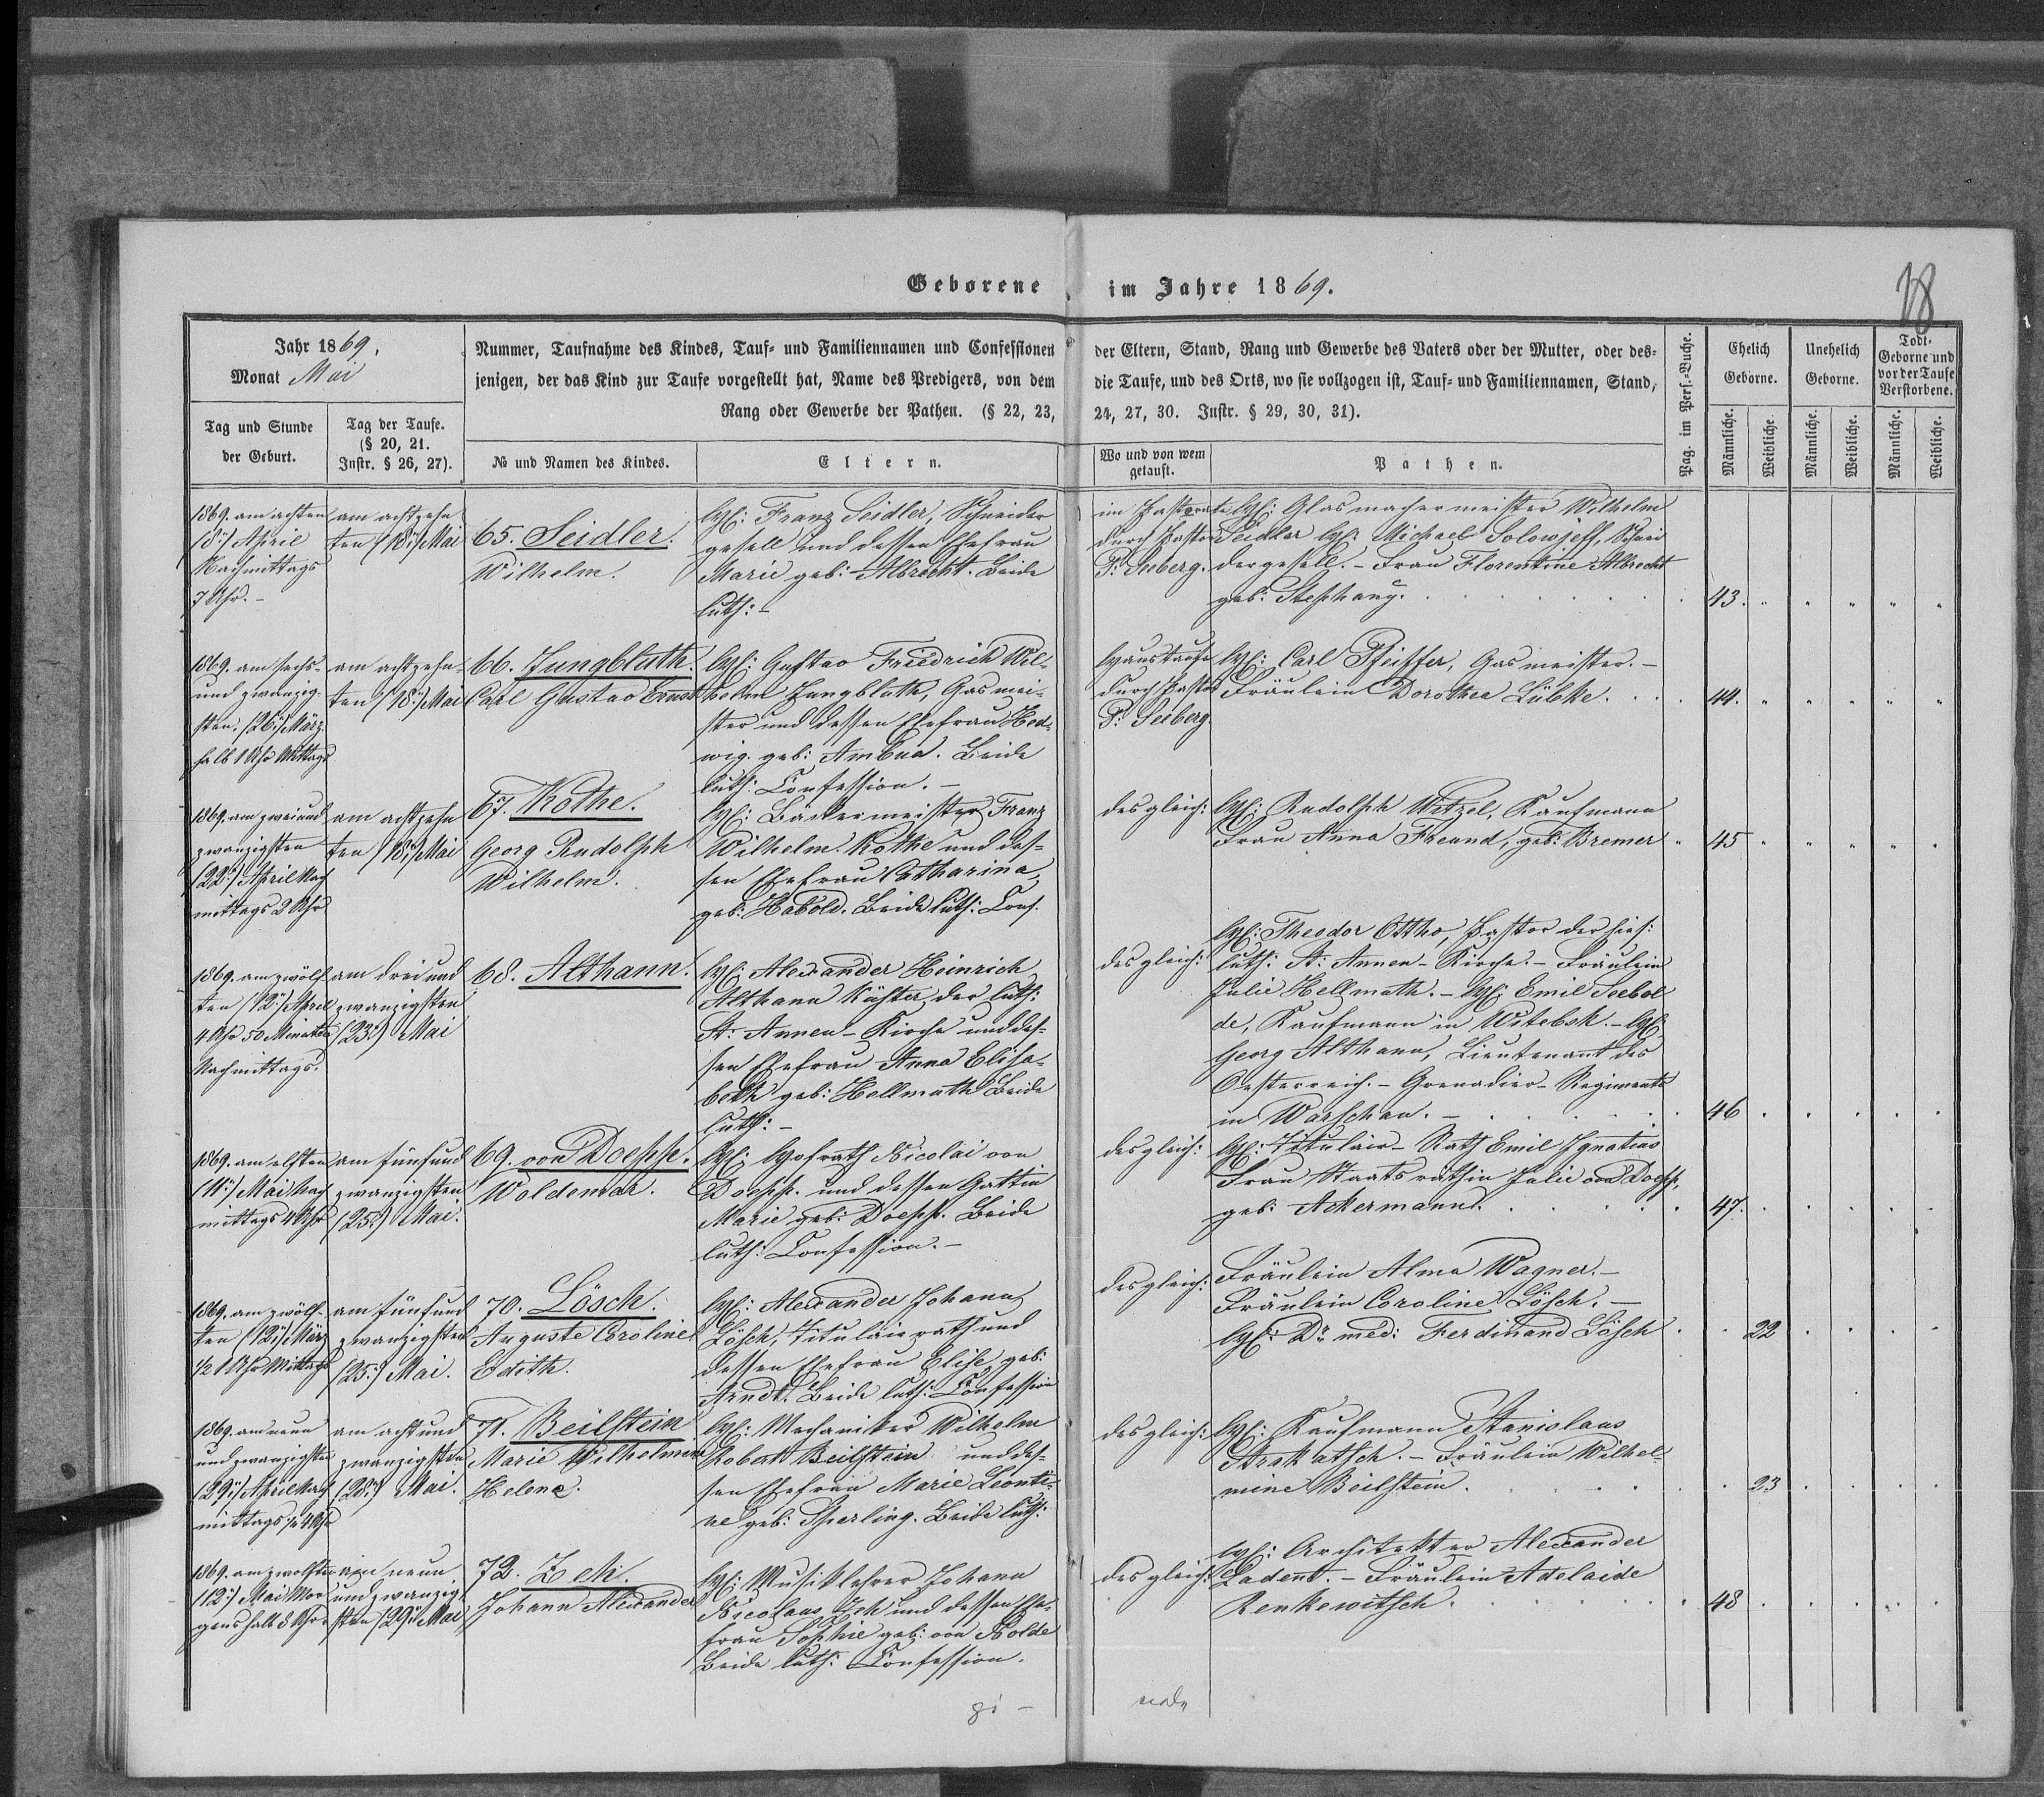 Geborene im Jahre 1869.
38
Jahr 1869.
Monat Mai
Nummer, Taufnahme des Kindes, Tauf- und Familiennamen und Confessionen der Eltern, Stand, Rang und Gewerbe des Vaters oder der Mutter, oder des-
jenigen, der das Kind zur Taufe vorgestellt hat, Name des Predigers, von dem die Taufe, und des Orts, wo sie vollzogen ist, Tauf- und Familiennamen, Stand,
Rang oder Gewerbe der Pathen. (§ 22, 23, 24, 27, 30. Instr. § 29, 30, 31).
Tag und Stunde
der Geburt.
Tag der Taufe.
(§ 20, 21.
Instr. § 26, 27).
№ und Namen des Kindes.
Eltern.
Wo und von wem
getauft.
Pathen.
Pag. im Pers.-Buche.
Ehelich
Geborne.
Unehelich
Geborne.
Todt-
Geborne und
vor der Taufe
Verstorbene.
Männliche.
Weibliche.
Männliche.
Weibliche.
Männliche.
Weibliche.
1869. am achten
(8.) April
Nachmittags
7 Uhr.-
am achtzehn
ten (18.) Mai
65. Seidler.
Wilhelm.
H: Franz Seidler, Schneider
gesell und dessen Ehefrau
Marie geb: Albrecht. Beide
luth:-
im Pastorate
durch Pastor
P: Seeberg.
H: Glasmachermeister Wilhelm
Seidler H: Michael Solowjeff, Schnei
dergesell. - Frau Florentine Albrecht
geb: Stephany.
43.
1869. am sechs-
und zwanzig-
sten (26.) März
halb 1 Uhr Mittags
am achtzehn-
ten (18.) Mai
66. Jungbluth.
Carl Gustav Ernst
H: Gustav Friedrich Wil-
helm Jungbluth, Gasmei-
ster und dessen Ehefrau Hed-
wig. geb: Beide
luth: Confession.-
Haustaufe
durch Pastor
P: Seeberg.
H: Carl Pfeiffer, Gasmeister.-
Fräulein Dorothea Lübke.
44.
1869. am zweiund
zwanzigsten
(22.) April Nach
mittags 2 Uhr
am achtzehn
ten (18.) Mai
67. Kothe.
Georg Rudolph
Wilhelm.
H: Bäckermeister Franz
Wilhelm Kothe und des-
sen Ehefrau Catharina,
geb: Habold. Beide luth: Conf.
desgleich:
H: Rudolph Wetzel, Kaufmann
Frau Anna Freund, geb: Bremer
45
1869. am zwölf
ten (12.) April
4 Uhr 50 Minuten
Nachmittags.
am dreiund
zwanzigsten
(23.) Mai
68. Althann.
H: Alexander Heinrich
Althann Küster der luth:
St: Annen-Kirche und des-
sen Ehefrau Anna Elisa-
beth geb: Hellmuth Beide
luth:-
desgleich:
H: Theodor Ottho, Pastor der hies:
luth: St: Annen-Kirche.- Fräulein
Julie Hellmuth.- H: Emil Seebol
de, Kaufmann in Witebsk.- H:
Georg Althann, Lieutenant des
Oesterreich.- Grenadier-Regiments
in Warschau.-
46
1869. am elften
(11.) Mai Nach
mittags 4 Uhr
am fünfund
zwanzigsten
(25.) Mai.
69. von Doepp.
Woldemar.
H: Hofrath Nicolai von
Doepp. und dessen Gattin
Marie geb: Doepp. Beide
luth: Confession.-
desgleich:
H: Titulair-Rath Emil Ignatius
Frau Staatsräthin Julie von Doepp,
geb: Ackermann.
47.
1869. am zwölf-
ten (12.) März
1/2 1 Uhr Mittags
am fünfund
zwanzigsten
(25.) Mai.
70. Lösch.
Auguste Caroline
Edith.
H: Alexander Johann
Lösch, Titulairrath und
dessen Ehefrau Elise, geb:
Arndt. Beide luth: Confession
desgleich:
Fräulein Alma Wagner.-
Fräulein Caroline Lösch.-
H: Dr med: Ferdinand Lösch
22
1869. am neun
und zwanzigsten
(29.) April Nach
mittags 1/2 4 Uhr
am achtund
zwanzigsten
(28.) Mai.
71. Beilstein
Marie Wilhelmine
Helene.
H: Mechaniker Wilhelm
Robert Beilstein und des-
sen Ehefrau Marie Leonti-
ne geb: Sperling. Beide luth:
desgleich:
H: Kaufmann Stanislaus
Strakatsch.- Fräulein Wilhel-
mine Beilstein.
23
1869. am zwölften
(12.) Mai Mor
gens halb 8 Uhr
am neun
und zwanzig-
sten (29.) Mai
72. Zeh.
Johann Alexander
H: Musiklehrer Johann
Nicolaus Zeh und dessen Ehe-
frau Sophie geb: von Nolde
Beide luth: Confession.
desgleich:
H: Architekt Alexander
Fräulein Adelaide
Renkewitsch
48